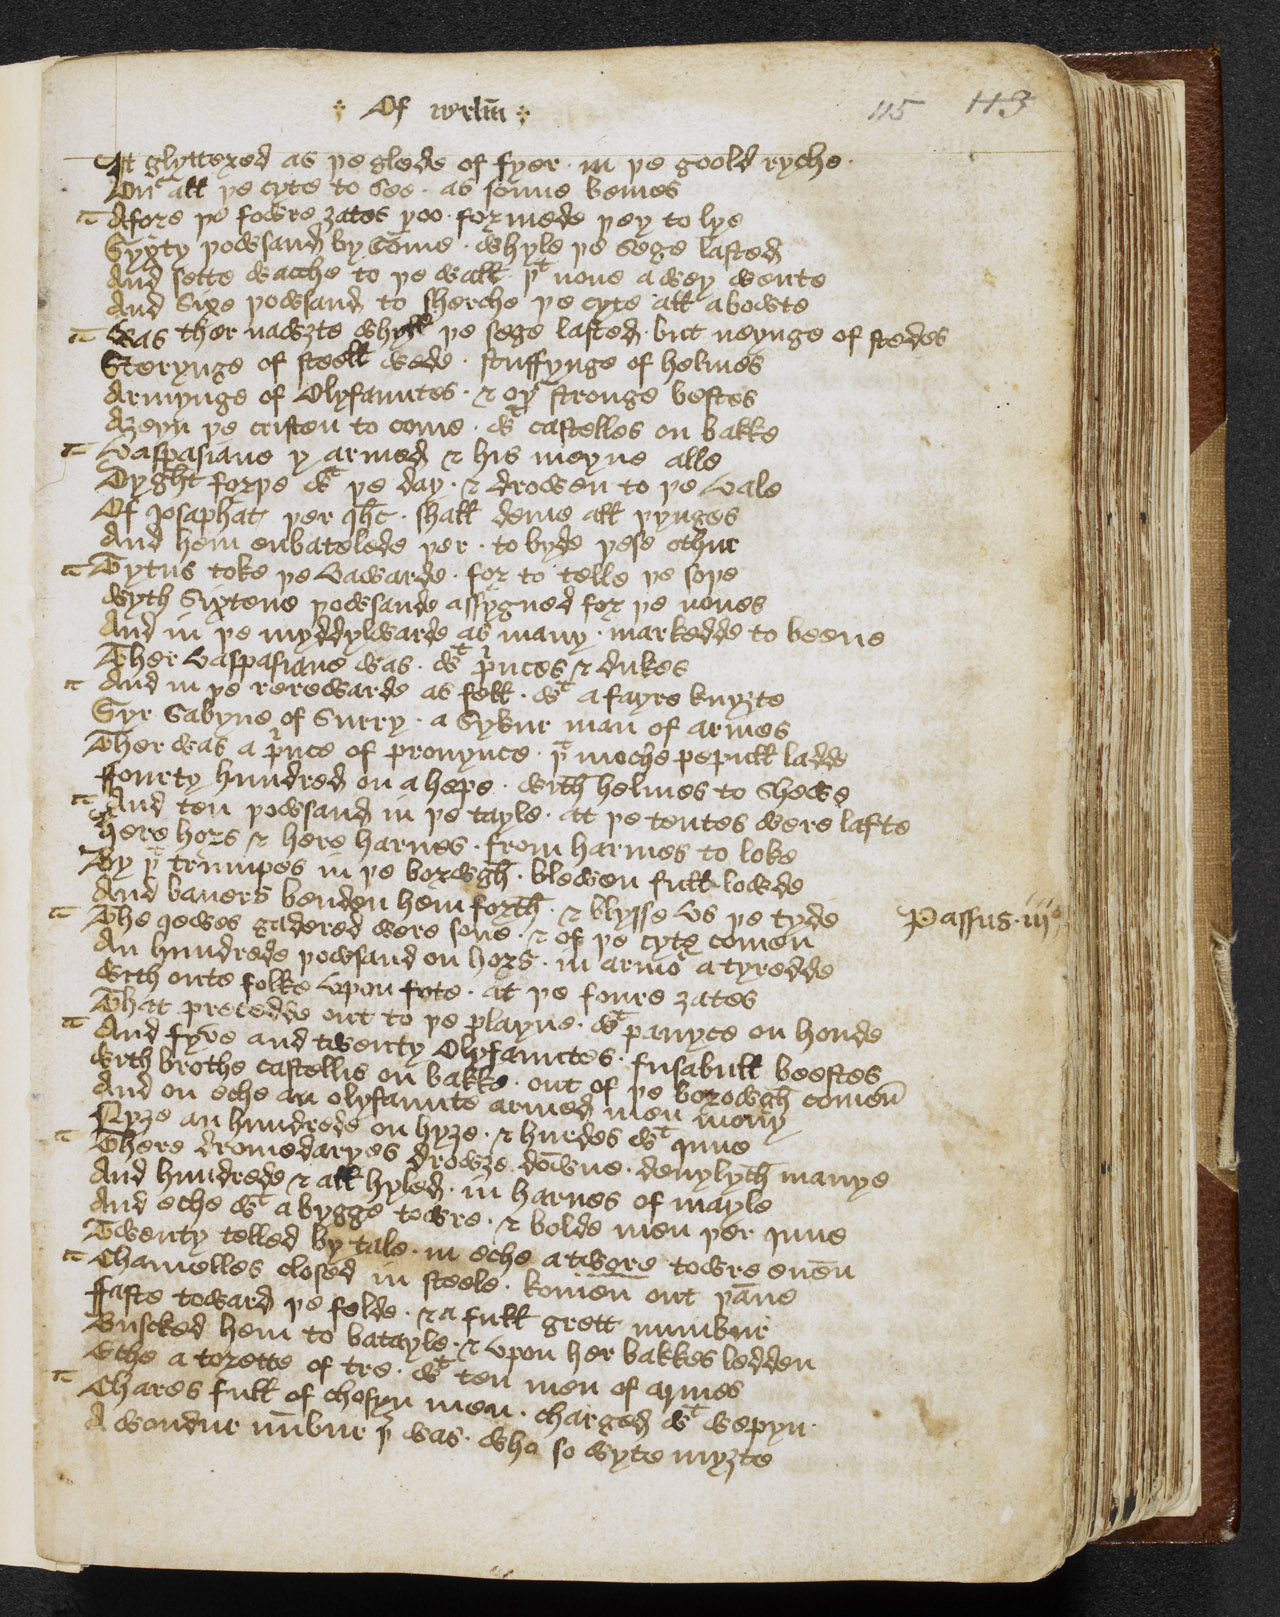 Of ierlm̄
115 113
It glyttered as þe glede of fyer · in þe goold ryche ·
Ouer all þe cyte to see · as sonne bemes
Afore þe fowre ȝates þoo · formede þey to lye
Syxty þowsand by come · whyle þe sege lasted
And sette wacche to þe wall · þt none awey wente
And sixe þowsand to sherche þe cyte all abowte
Was ther nawȝte whyll þe sege lasted · but neynge of stedes
Sterynge of steell wede · stuffynge of helmes
Armynge of Olyfauntes · & oþer stronge bestes
Aȝeyn þe cristen to come · wt castelles on bakke
Vaspasiane y armed & his meyne alle
Dyght forþe wt þe day · & drowen to þe vale
Of Iosaphat þer ihc · shall deme all þynges
And hem enbatelede þer · to byde þese othur
Tytus toke þe vawarde · for to telle þe soþe
wyth sixtene þowsande assygned for þe nones
And in þe myddylwarde as many · markedde to beene
Ther vaspasiane was · wt princes & dukes
And in þe rerewarde as fell · wt a fayre knyȝte
Syr Sabyne of Surry · a sykur man of armes
Ther was a prince of prouynce · þt moche pepull ladde
ffourty hundred on a hepe · with helmes to shewe
And ten þowsand in þe tayle · at þe tentes were lafte
here hors & here harnes · from harmes to loke
By þt trumpes in þe borwgh · blewen full lowde
And baners benden hem forth · & blysse vs þe tyde
The iewes gadered were sone · & of þe cyte comen
Passus · iijs
An hundrede þowsand on hors · in armour atyredde
with oute folke vpon fote · at þe foure ȝates
That precedde out to þe playne · wt panyce on honde
And fyve and twenty Olyfauntes · fusabull beestes
with brothe castellis on bakke · out of þe borowgh comen
And on eche an olyfaunte armed men mony
Nyȝe an hundrede on hyȝe · & hurdes wt inne
There dromedaryes drowȝe downe · deuylych manye
And hundrede & all hyled · in harnes of mayle
And eche wt a bygge towre · & bolde men þer inne
Twenty telled by tale · in eche a twore towre euen
Chamelles closed in steele · komen out þanne
ffaste toward þe felde · & a full grett numbur
Buscked hem to batayle · & vpon her bakkes ledden
Eche a torette of tre · wt ten men of armes
Chares full of chosyn men · charged wt wepyn ·
A wondur numbur þer was · who so wyte myȝte